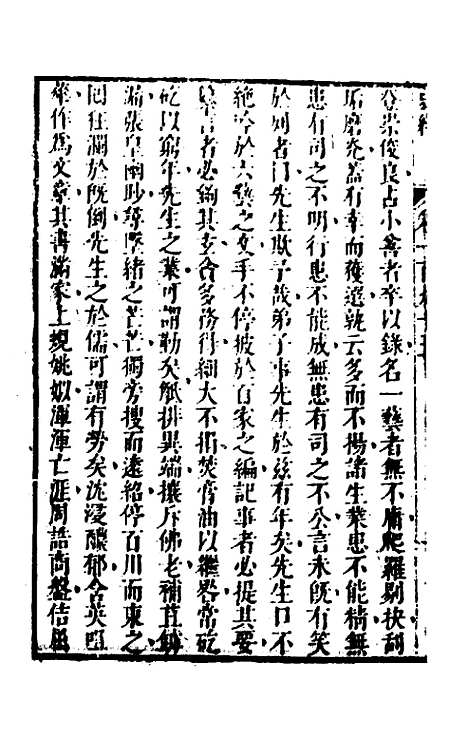 登崇俊良占小善者率以錄名一藝者無不庸爬羅剔抉刮
垢磨光蓋有幸而獲選孰云多而不揚諸生業患不能精無
患有司之不明行患不能成無患有司之不公言未既有笑
於列者曰先生欺予哉弟子事先生於茲有年矣先生口不
絶吟於六藝之文手不停披於百家之編記事者必提其要
纂言者必鉤其玄貪多務得細大不捐焚膏油以繼晷常矻
矻以窮年先生之業可謂勤矣觝排異端攘斥佛老補苴罅
漏張皇幽眇尋墜緒之茫茫獨旁搜而遠紹停百川而東之
囘狂瀾於既倒先生之於儒可謂有勞矣沈浸醲郁含英咀
華作爲文章其書滿家上規姚姒渾渾亡涯周誥商盤佶屈